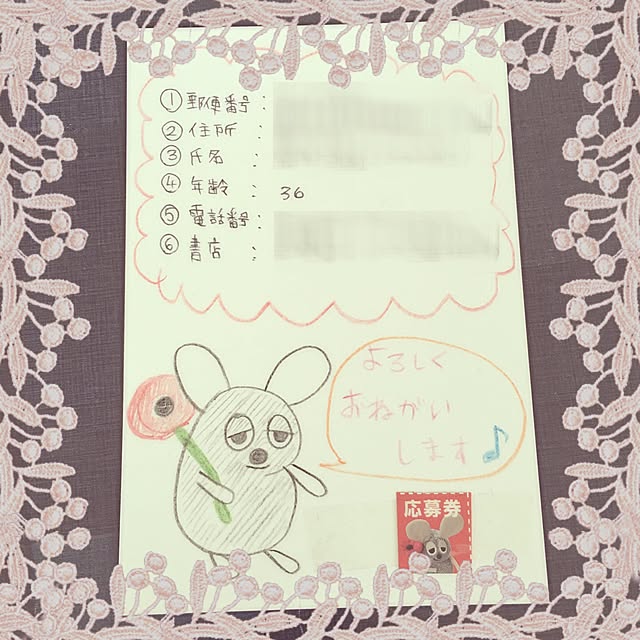 ① 郵便番号：
② 住所：
③ 氏名：
④ 年齢： 36
⑤ 電話番号：
⑥ 書店：
よろしく
おねがい
します♪
応募券